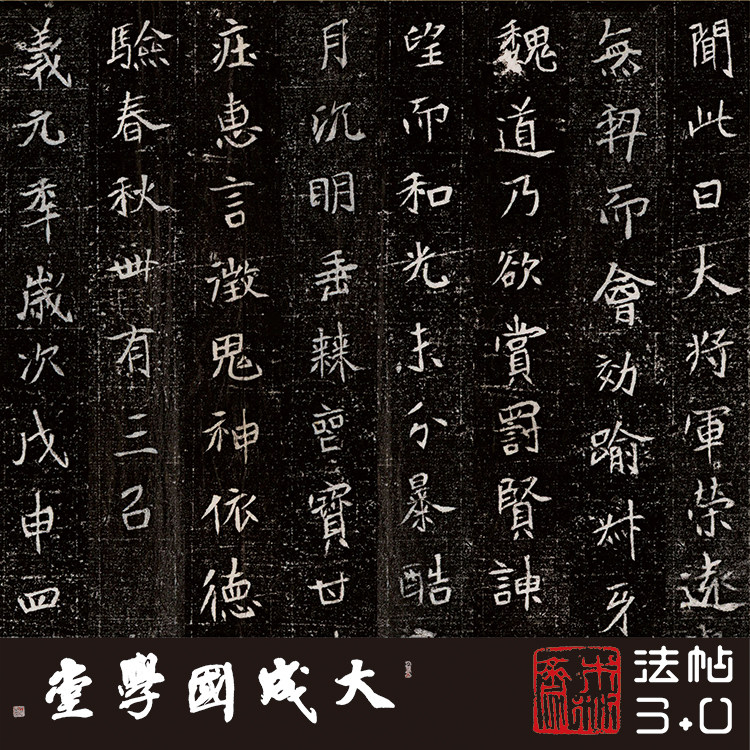 聞此日大将軍荣遠
無契而會効踰叔牙
魏道乃欲賞罰賢諫
望而和光未分暴酷
月沉明垂棘喪寶甘
惠言徵鬼神依德
驗春秋卌有三
義元年歲次戊申四
大成國學堂
法帖
3.0